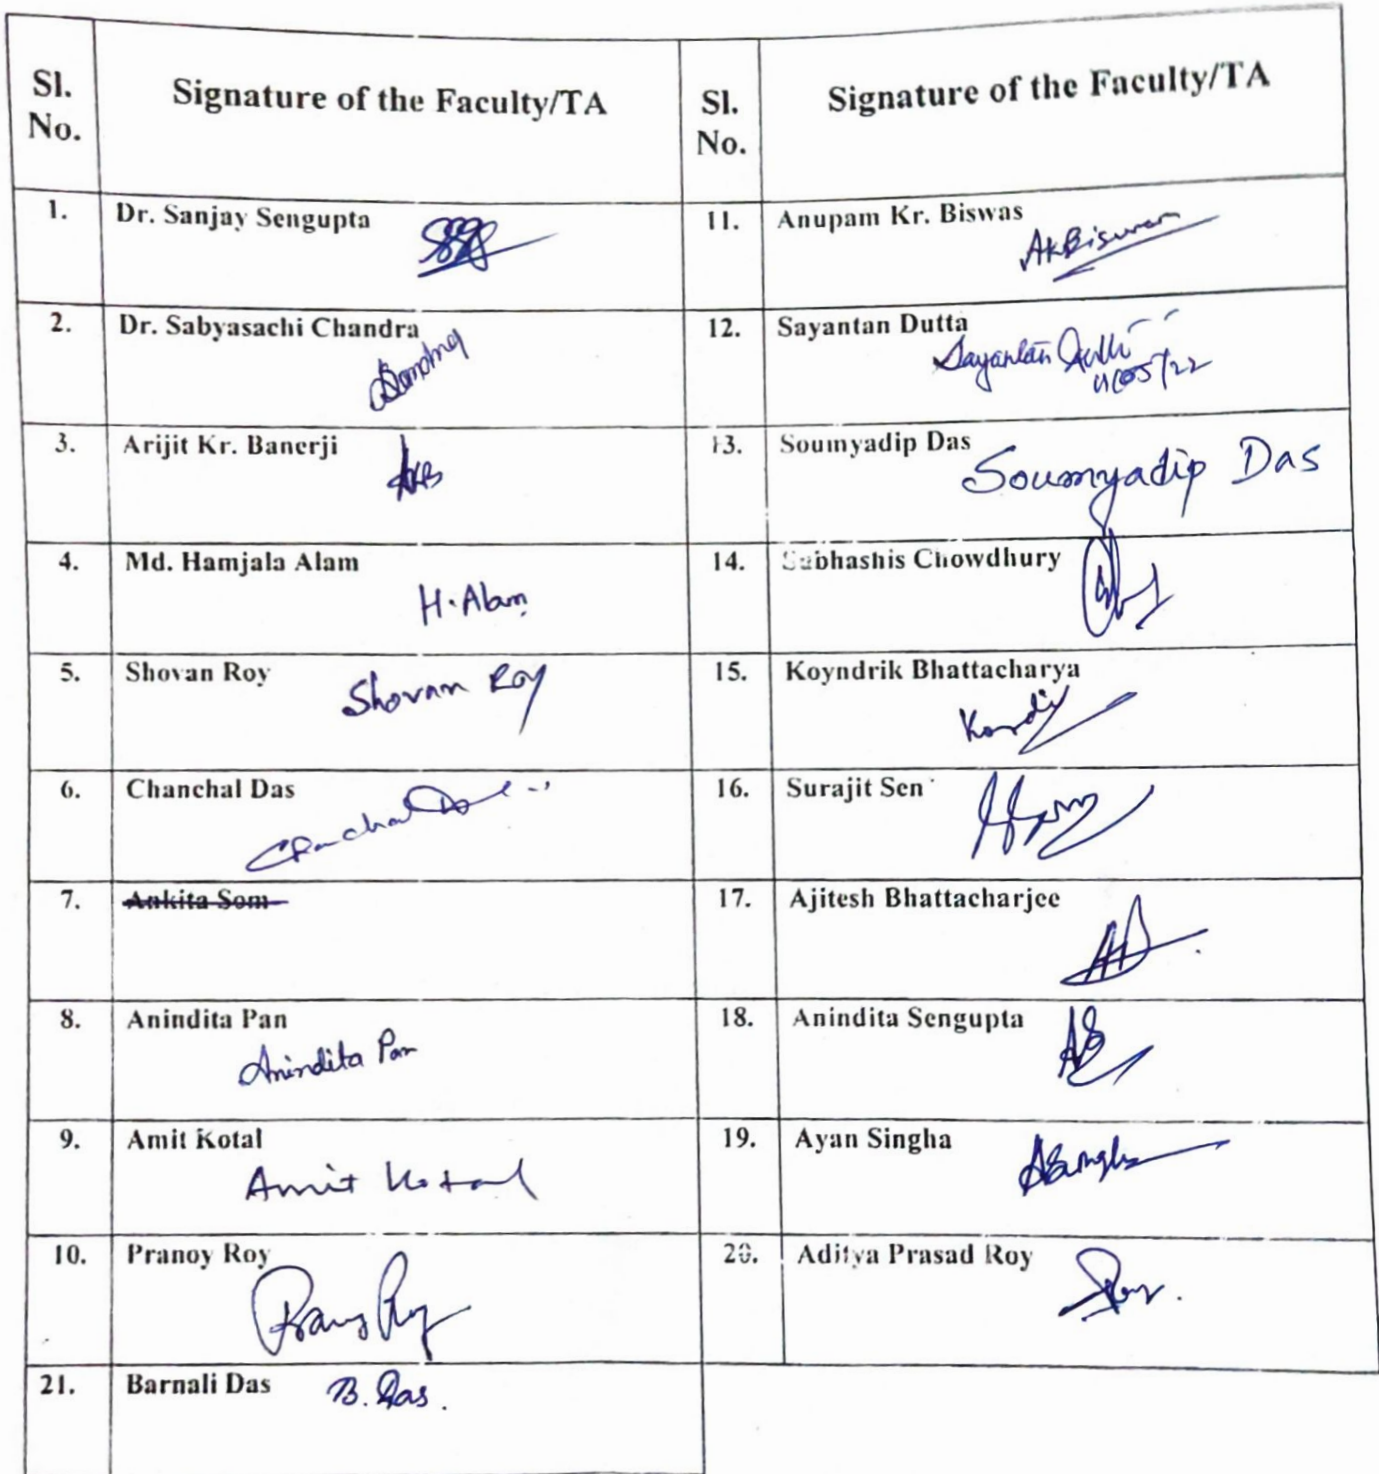 Sl. No.
Signature of the Faculty/TA
Sl. No.
Signature of the Faculty/TA
1.
Dr. Sanjay Sengupta
11.
Anupam Kr. Biswas
AKBiswas
2.
Dr. Sabyasachi Chandra
12.
Sayantan Dutta
Sayantan Dutta
3.
Arijit Kr. Banerji
AKB
13.
Soumyadip Das
Soumyadip Das
4.
Md. Hamjala Alam
H. Alam
14.
Subhashis Chowdhury
5.
Shovan Roy
Shovan Roy
15.
Koyndrik Bhattacharya
6.
Chanchal Das
Chanchal Das
16.
Surajit Sen
7.
Ankita Som
17.
Ajitesh Bhattacharjee
8.
Anindita Pan
Anindita Pan
18.
Anindita Sengupta
AS
9.
Amit Kotal
Amit Kotal
19.
Ayan Singha
ASingha
10.
Pranoy Roy
Pranoy Roy
20.
Aditya Prasad Roy
21.
Barnali Das
B. Das.